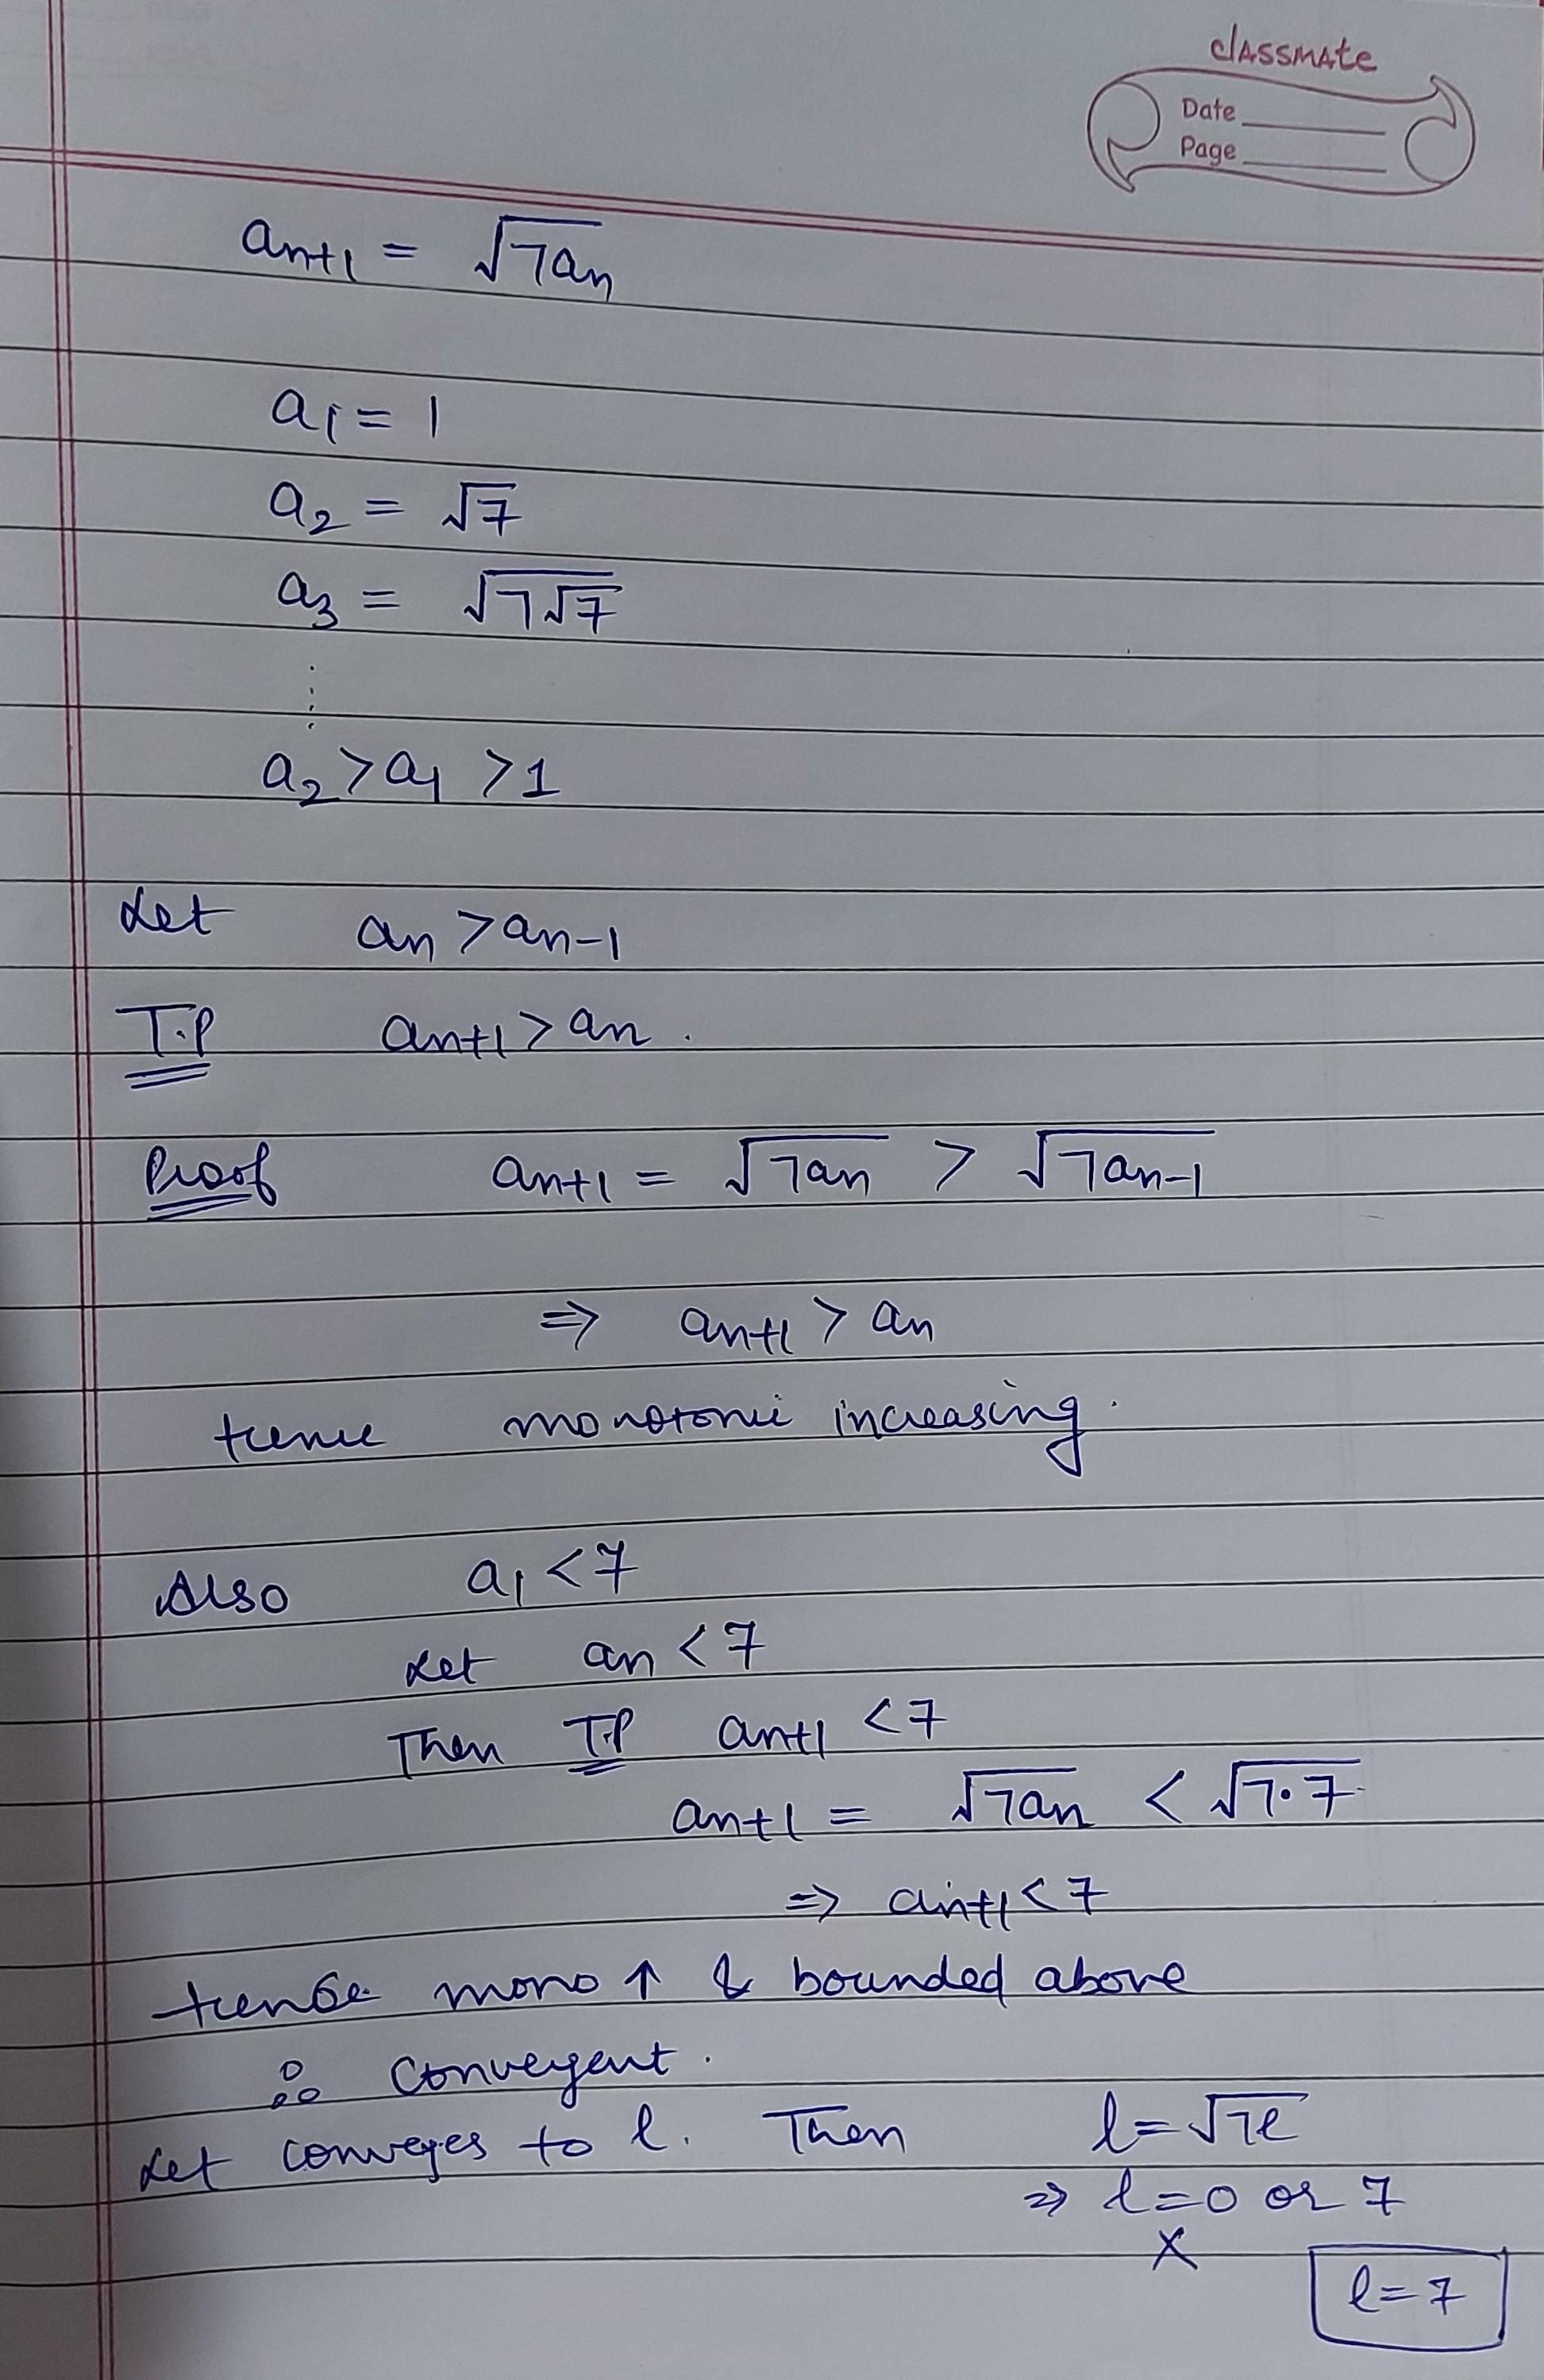 classmate
Date
Page
an+1 = √7an
a1 = 1
a2 = √7
a3 = √7√7
⋮
a2 > a1 > 1
Let an > an-1
T.P an+1 > an .
Proof an+1 = √7an > √7an-1
⇒ an+1 > an
Hence monotonic increasing.
Also a1 < 7
Let an < 7
Then T.P an+1 < 7
an+1 = √7an < √7·7
⇒ an+1 < 7
Hence mono ↑ & bounded above
∴ Convergent .
Let converges to l. Then l = √7l
⇒ l = 0 or 7
×
l = 7